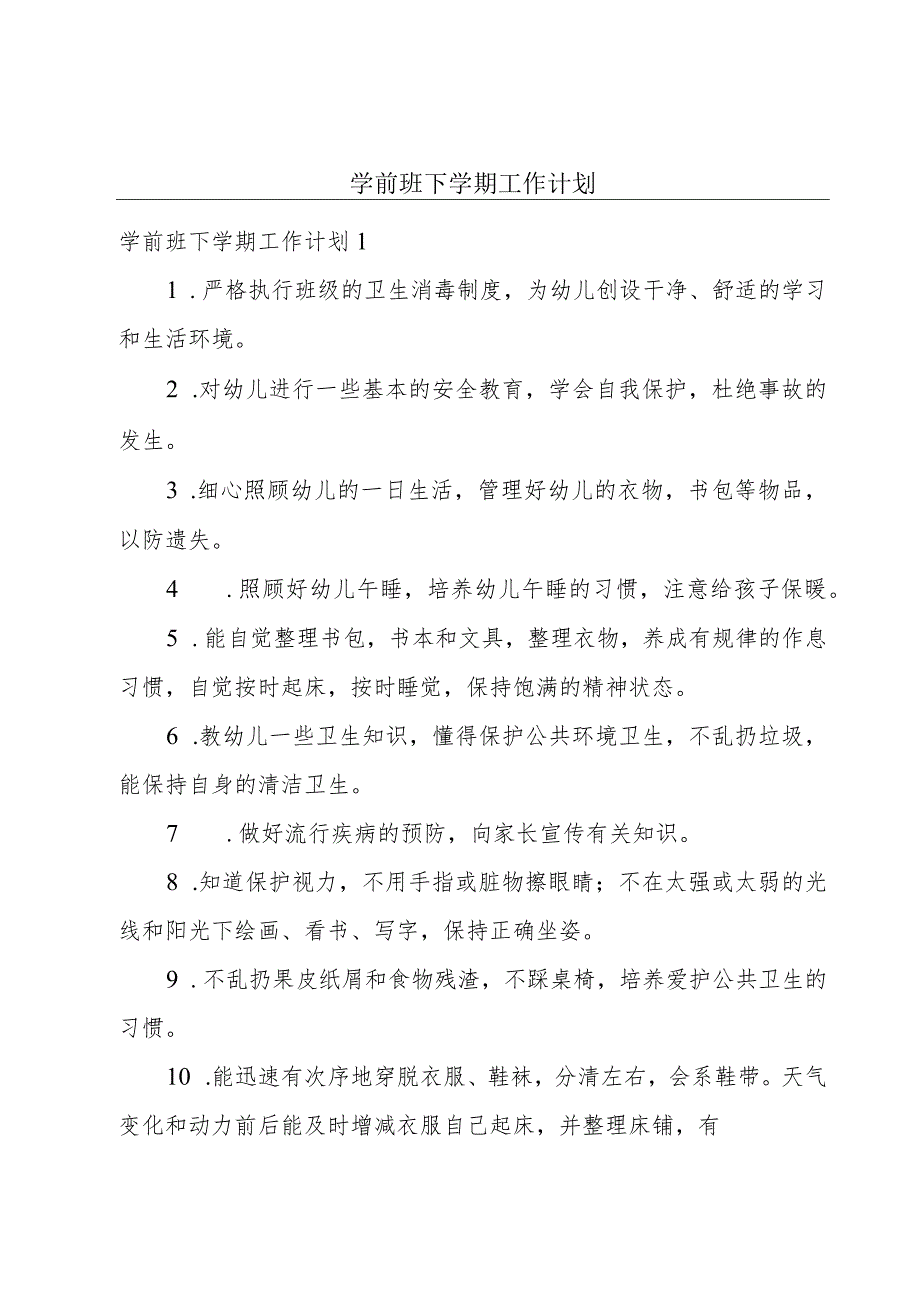 学前班下学期工作计划
学前班下学期工作计划1
1 .严格执行班级的卫生消毒制度，为幼儿创设干净、舒适的学习
和生活环境。
2 .对幼儿进行一些基本的安全教育，学会自我保护，杜绝事故的
发生。
3 .细心照顾幼儿的一日生活，管理好幼儿的衣物，书包等物品，
以防遗失。
4 .照顾好幼儿午睡，培养幼儿午睡的习惯，注意给孩子保暖。
5 .能自觉整理书包，书本和文具，整理衣物，养成有规律的作息
习惯，自觉按时起床，按时睡觉，保持饱满的精神状态。
6 .教幼儿一些卫生知识，懂得保护公共环境卫生，不乱扔垃圾，
能保持自身的清洁卫生。
7 .做好流行疾病的预防，向家长宣传有关知识。
8 .知道保护视力，不用手指或脏物擦眼睛；不在太强或太弱的光
线和阳光下绘画、看书、写字，保持正确坐姿。
9 .不乱扔果皮纸屑和食物残渣，不踩桌椅，培养爱护公共卫生的
习惯。
10 .能迅速有次序地穿脱衣服、鞋袜，分清左右，会系鞋带。天气
变化和动力前后能及时增减衣服自己起床，并整理床铺，有